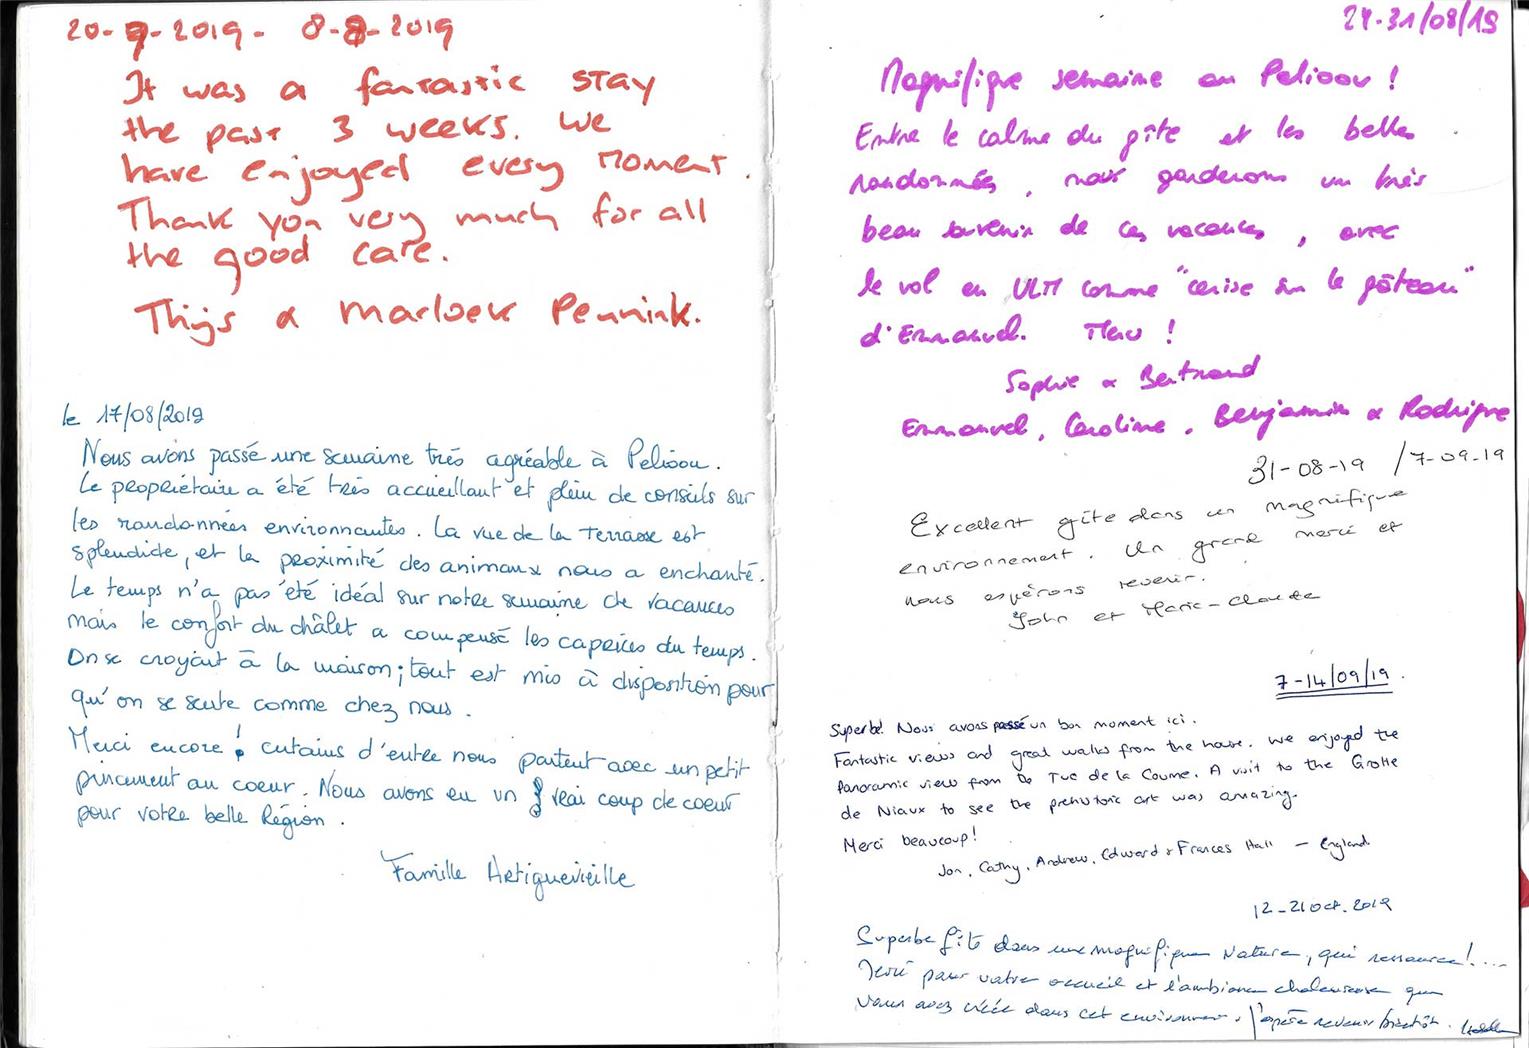 20-7-2019 - 8-8-2019
It was a fantastic stay
the past 3 weeks. We
have enjoyed every moment.
Thank you very much for all
the good care.
Thijs & Marloek Pennink.
le 17/08/2019
Nous avons passé une semaine très agréable à Pelissou.
Le propriétaire a été très accueillant et plein de conseils sur
les randonnées environnantes. La vue de la terrasse est
splendide, et la proximité des animaux nous a enchanté.
Le temps n'a pas été idéal sur notre semaine de vacances
mais le confort du châlet a compensé les caprices du temps.
On se croyait à la maison; tout est mis à disposition pour
qu'on se sente comme chez nous.
Merci encore! certains d'entre nous partent avec un petit
pincement au coeur. Nous avons eu un vrai coup de coeur
pour votre belle Région.
Famille Artiguevieille
24-31/08/19
Magnifique semaine au Pelissou!
Entre le calme du gîte et les belles
randonnées, nous garderons un très
beau souvenir de ces vacances, avec
le vol en ULM comme "cerise sur le gâteau"
d'Emmanuel. Merci!
Sophie & Bertrand
Emmanuel, Caroline, Benjamin & Rodrigue
31-08-19 / 7-09-19
Excellent gîte dans un magnifique
environnement. Un grand merci et
nous espérons revenir.
John et Marie-Claude
7-14/09/19.
Superbe! Nous avons passé un bon moment ici.
Fantastic views and great walks from the house. We enjoyed the
Panoramic view from Tuc de la Coume. A visit to the Grotte
de Niaux to see the prehistoric art was amazing.
Merci beaucoup!
Jon, Cathy, Andrew, Edward & Frances Hall - England
12-21 oct. 2019
Superbe gîte dans une magnifique Nature, qui ressource!....
Merci pour votre accueil et l'ambiance chaleureuse que
vous avez créée dans cet environnement. J'espère revenir bientôt.